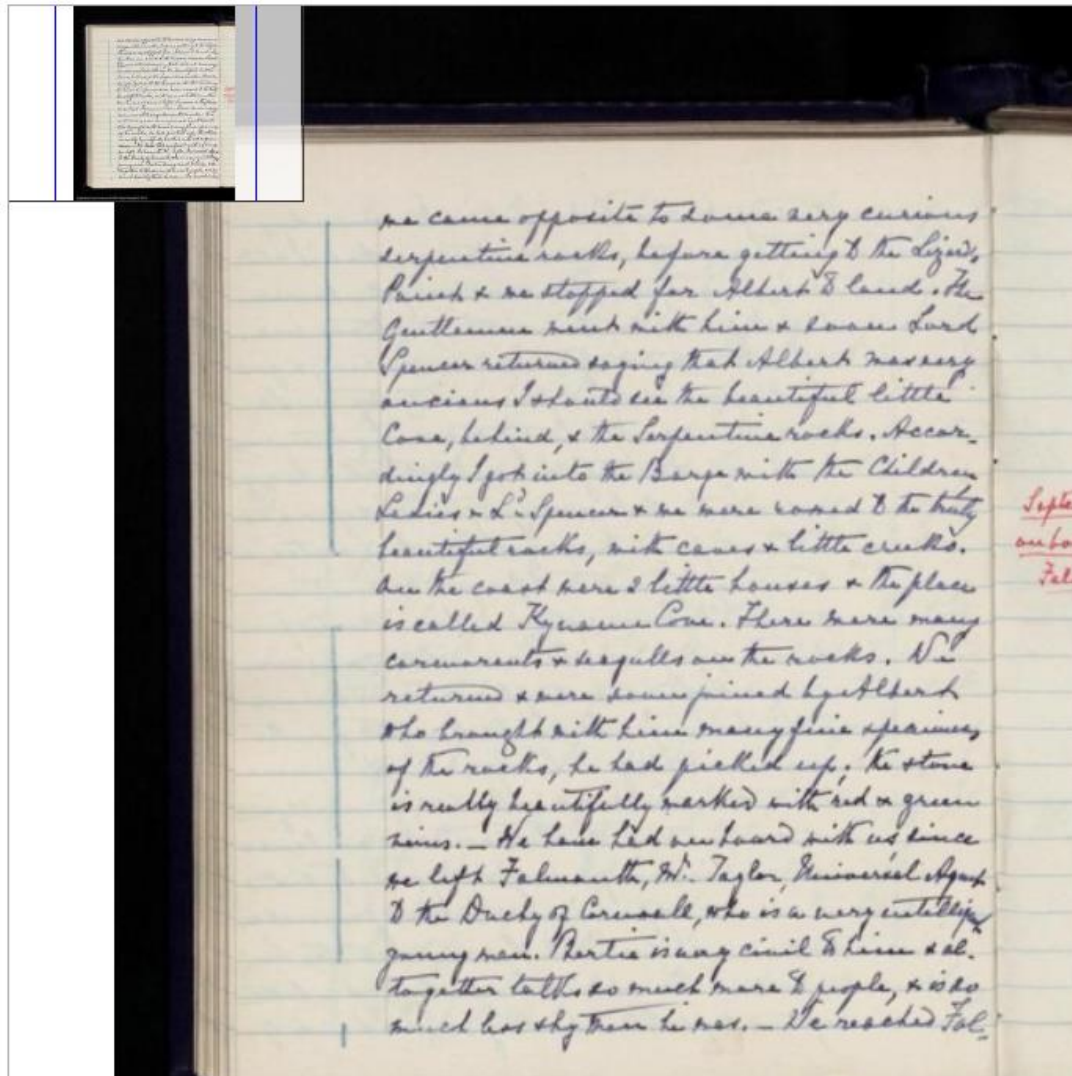 we came opposite to some very curious
serpentine rocks, before getting to the Lizard,
Point & we stopped for Albert to land. The
Gentlemen went with him & soon Lord
Spencer returned saying that Albert was very
anxious I should see the beautiful little
Cove, behind, & the Serpentine rocks. Accor-
dingly I got into the Barge with the Children
Ladies & Ld Spencer & we were rowed to the truly
beautiful rocks, with caves & little creeks.
On the coast were 2 little houses & the place
is called Kynance Cove. There were many
cormorants & seagulls on the rocks. We
returned & were soon joined by Albert
who brought with him many fine specimens
of the rocks, he had picked up; the stone
is really beautifully marked with red & green
veins. — We have had on board with us since
we left Falmouth, Mr. Taylor, Universal Agent
to the Duchy of Cornwall, who is a very intelligent
young man. Bertie is very civil to him & al-
together talks so much more to people, & is so
much less shy than he was. — We reached Fal-
Septe
on bo
Fal